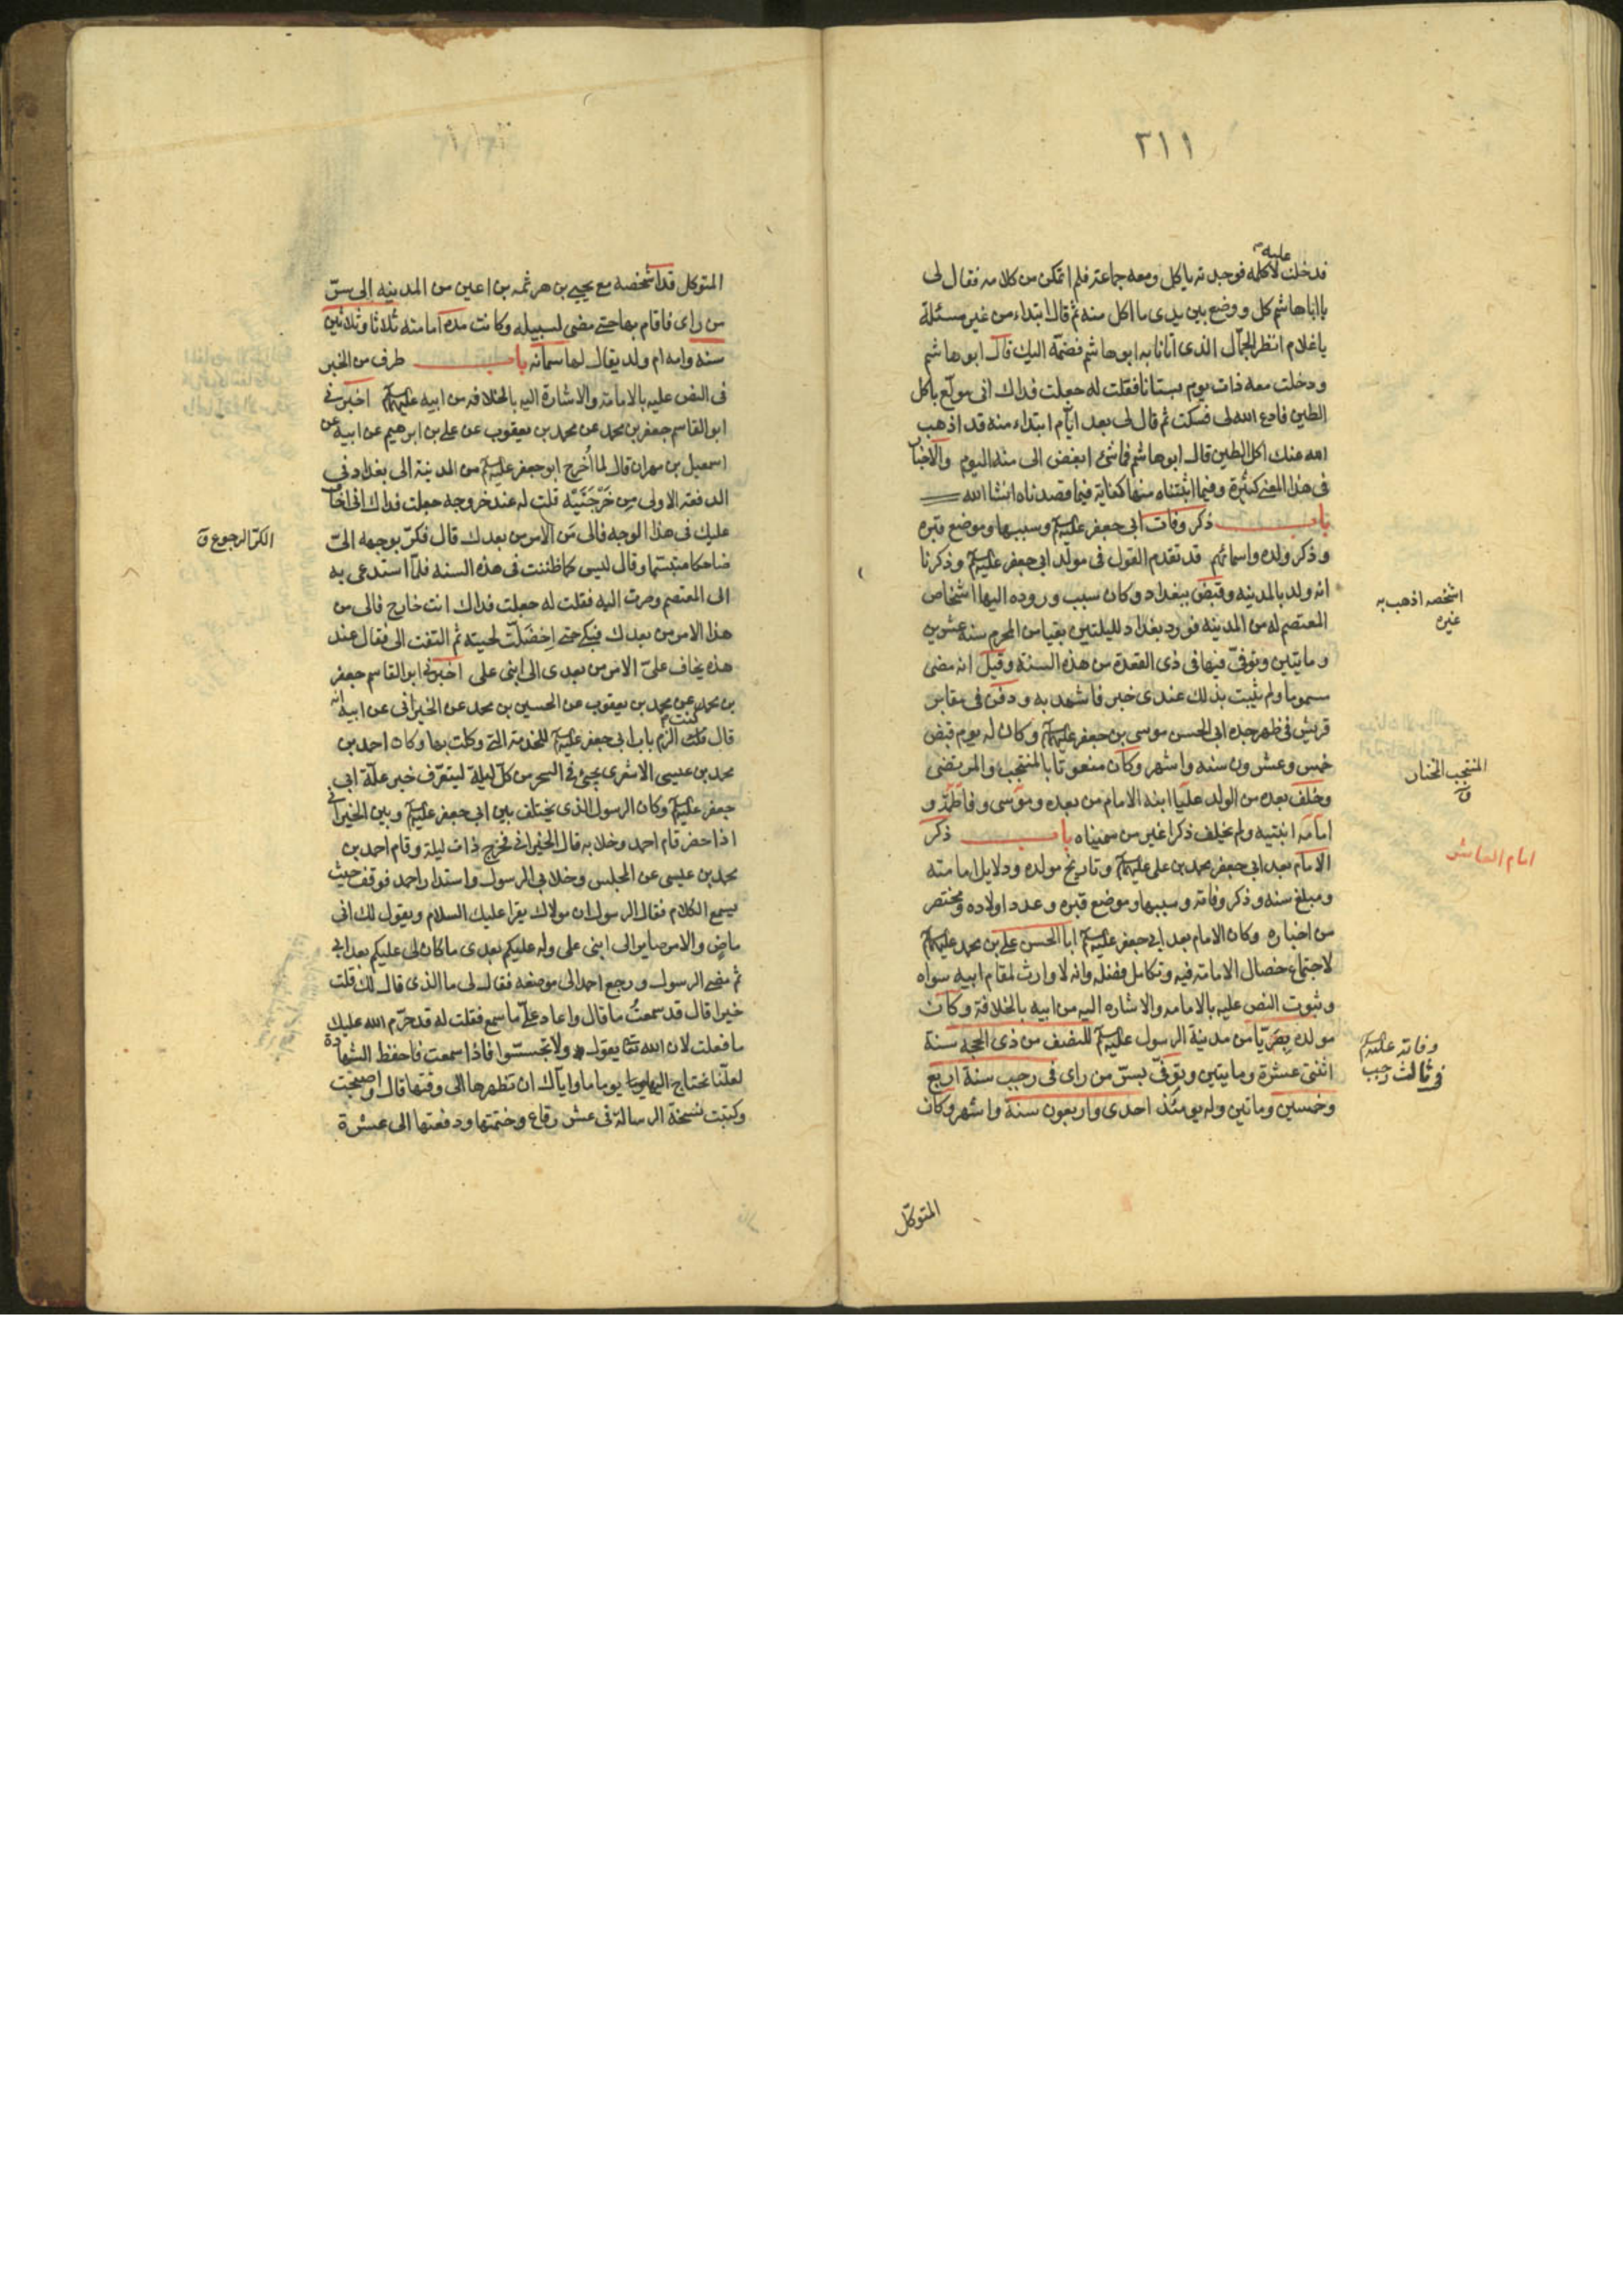 ٢١١
فدخلت عليه لاكلمه فوجدته ياكل ومعه جماعة فلم اتمكن من كلامه فقال لى
يا اباهاشم كل ووضع بين يدى ما اكل منه ثم قال ابتداء من غير مسئلة
ياغلام انظر الجمّال الذى اتانا به ابو هاشم فضمّه اليك قال ابو هاشم
ودخلت معه ذات يوم بستانا فقلت له جعلت فداك انى مولع باكل
الطين فادع الله لى فسكت ثم قال لى بعد ايّام ابتداء منه قد اذهب
الله عنك اكل الطين قال ابو هاشم فما شئ ابغض الى منه اليوم والاخبار
فى هذا المعنى كثيرة وفيما اثبتناه منها كفاية فيما قصدناه انشا الله
باب ذكر وفات ابى جعفر عليه السلم وسببها وموضع قبره
وذكر ولده واسمائهم قد تقدم القول فى مولد ابى جعفر عليه السلم وذكرنا
انه ولد بالمدينه وقبض ببغداد وكان سبب وروده اليها اشخاص
المعتصم له من المدينه فورد بغداد لليلتين بقيا من المحرم سنه عشرين
ومايتين وتوفّى فيها فى ذى القعدة من هذه السنة وقيل انه مضى
مسموما ولم يثبت بذلك عندى خبر فاشهد به ودفن فى مقابر
قريش فى ظهر جده ابى الحسن موسى بن جعفر عليهم السلم وكان له يوم قبض
خمس وعشرون سنه واشهر وكان منعوتا بالمنتجب والمرتضى
وخلف بعده من الولد عليا ابنه الامام من بعده وموسى وفاطمة و
امامه ابنتيه ولم يخلف ذكرا غير من سميناه باب ذكر
الامام بعد ابى جعفر محمد بن على عليهم السلم وتاريخ مولده ودلايل امامته
ومبلغ سنه وذكر وفاته وسببها وموضع قبره وعدد اولاده ومختصر
من اخباره وكان الامام بعد ابى جعفر عليه السلم ابا الحسن على بن محمد عليهم السلم
لاجتماع خصال الامامة فيه وتكامل فضله وانه لا وارث لمقام ابيه سواه
وثبوت النص عليه بالامامه والاشاره اليه من ابيه بالخلافة وكان
مولده بِصَرْيا من مدينة الرسول عليه السلم للنصف من ذى الحجه سنة
اثنتى عشرة ومايتين وتوفّى بسرّ من راى فى رجب سنة اربع
وخمسين وماتين وله يومئذ احدى واربعون سنة واشهر وكان
المتوكل
اشخصه اذهب به
غيره
المنتجب المختار
ق
امام العاشر
وفاته عليه السلم
فى ثالث رجب
المتوكل قد اشخصه مع يحيى بن هرثمه بن اعين من المدينه الى سرّ
من راى فاقام بها حتى مضى لسبيله وكانت مدة امامته ثلاثا وثلاثين
سنه وامه ام ولد يقال لها سمانه باب طرف من الخبر
فى النص عليه بالامامة والاشارة اليه بالخلافه من ابيه عليهم السلم اخبرنى
ابو القاسم جعفر بن محمد عن محمد بن يعقوب عن على بن ابرهيم عن ابيه عن
اسمعيل بن مهران قال لما اُخرج ابو جعفر عليه السلم من المدينة الى بغداد فى
الدفعة الاولى مِن خَرْجَتَيْه قلت له عند خروجه جعلت فداك انى اخاف
عليك فى هذا الوجه فالى من الامر من بعدك قال فكرّ بوجهه الىّ
ضاحكا متبسّما وقال ليس كما ظننت فى هذه السنه فلمّا استدعى به
الى المعتصم وصرت اليه فقلت له جعلت فداك انت خارج فالى من
هذا الامر من بعدك فبكى حتى اِخضلّت لحيته ثم التفت الى فقال عند
هذه يخاف علىّ الامر من بعدى الى ابنى على اخبرنى ابو القاسم جعفر
بن محمد عن محمد بن يعقوب عن الحسين بن محمد عن الخيرانى عن ابيه انه
قال كنت الزم باب ابى جعفر عليه السلم للخدمة التى وكلت بها وكان احمد بن
محمد بن عيسى الاشعرى يجئ فى السحر من كلّ ليلة ليتعرّف خبر علّة ابى
جعفر عليه السلم وكان الرسول الذى يختلف بين ابى جعفر عليه السلم وبين الخيرانى
اذا حضر قام احمد وخلا به قال الخيرانى فخرج ذات ليلة وقام احمد بن
محمد بن عيسى عن المجلس وخلا بى الرسول واستدار احمد فوقف حيث
يسمع الكلام فقال الرسول ان مولاك يقرا عليك السلام ويقول لك انى
ماضٍ والامر صاير الى ابنى على وله عليكم بعدى ما كان لى عليكم بعد ابى
ثم مضى الرسول ورجع احمد الى موضعه فقال لى ما الذى قال لك قلت
خيرا قال قد سمعتُ ما قال واعاد علىّ ما سمع فقلت له قد حرّم الله عليك
ما فعلت لان الله تعا يقول ولا تجسّسوا فاذا سمعت فاحفظ الشهادة
لعلّنا نحتاج اليها يوما ما واياك ان تظهرها الى وقتها قال واصبحت
وكتبت نسخة الرسالة فى عشر رقاع وختمتها ودفعتها الى عشرة
الكرّ الرجوع ق